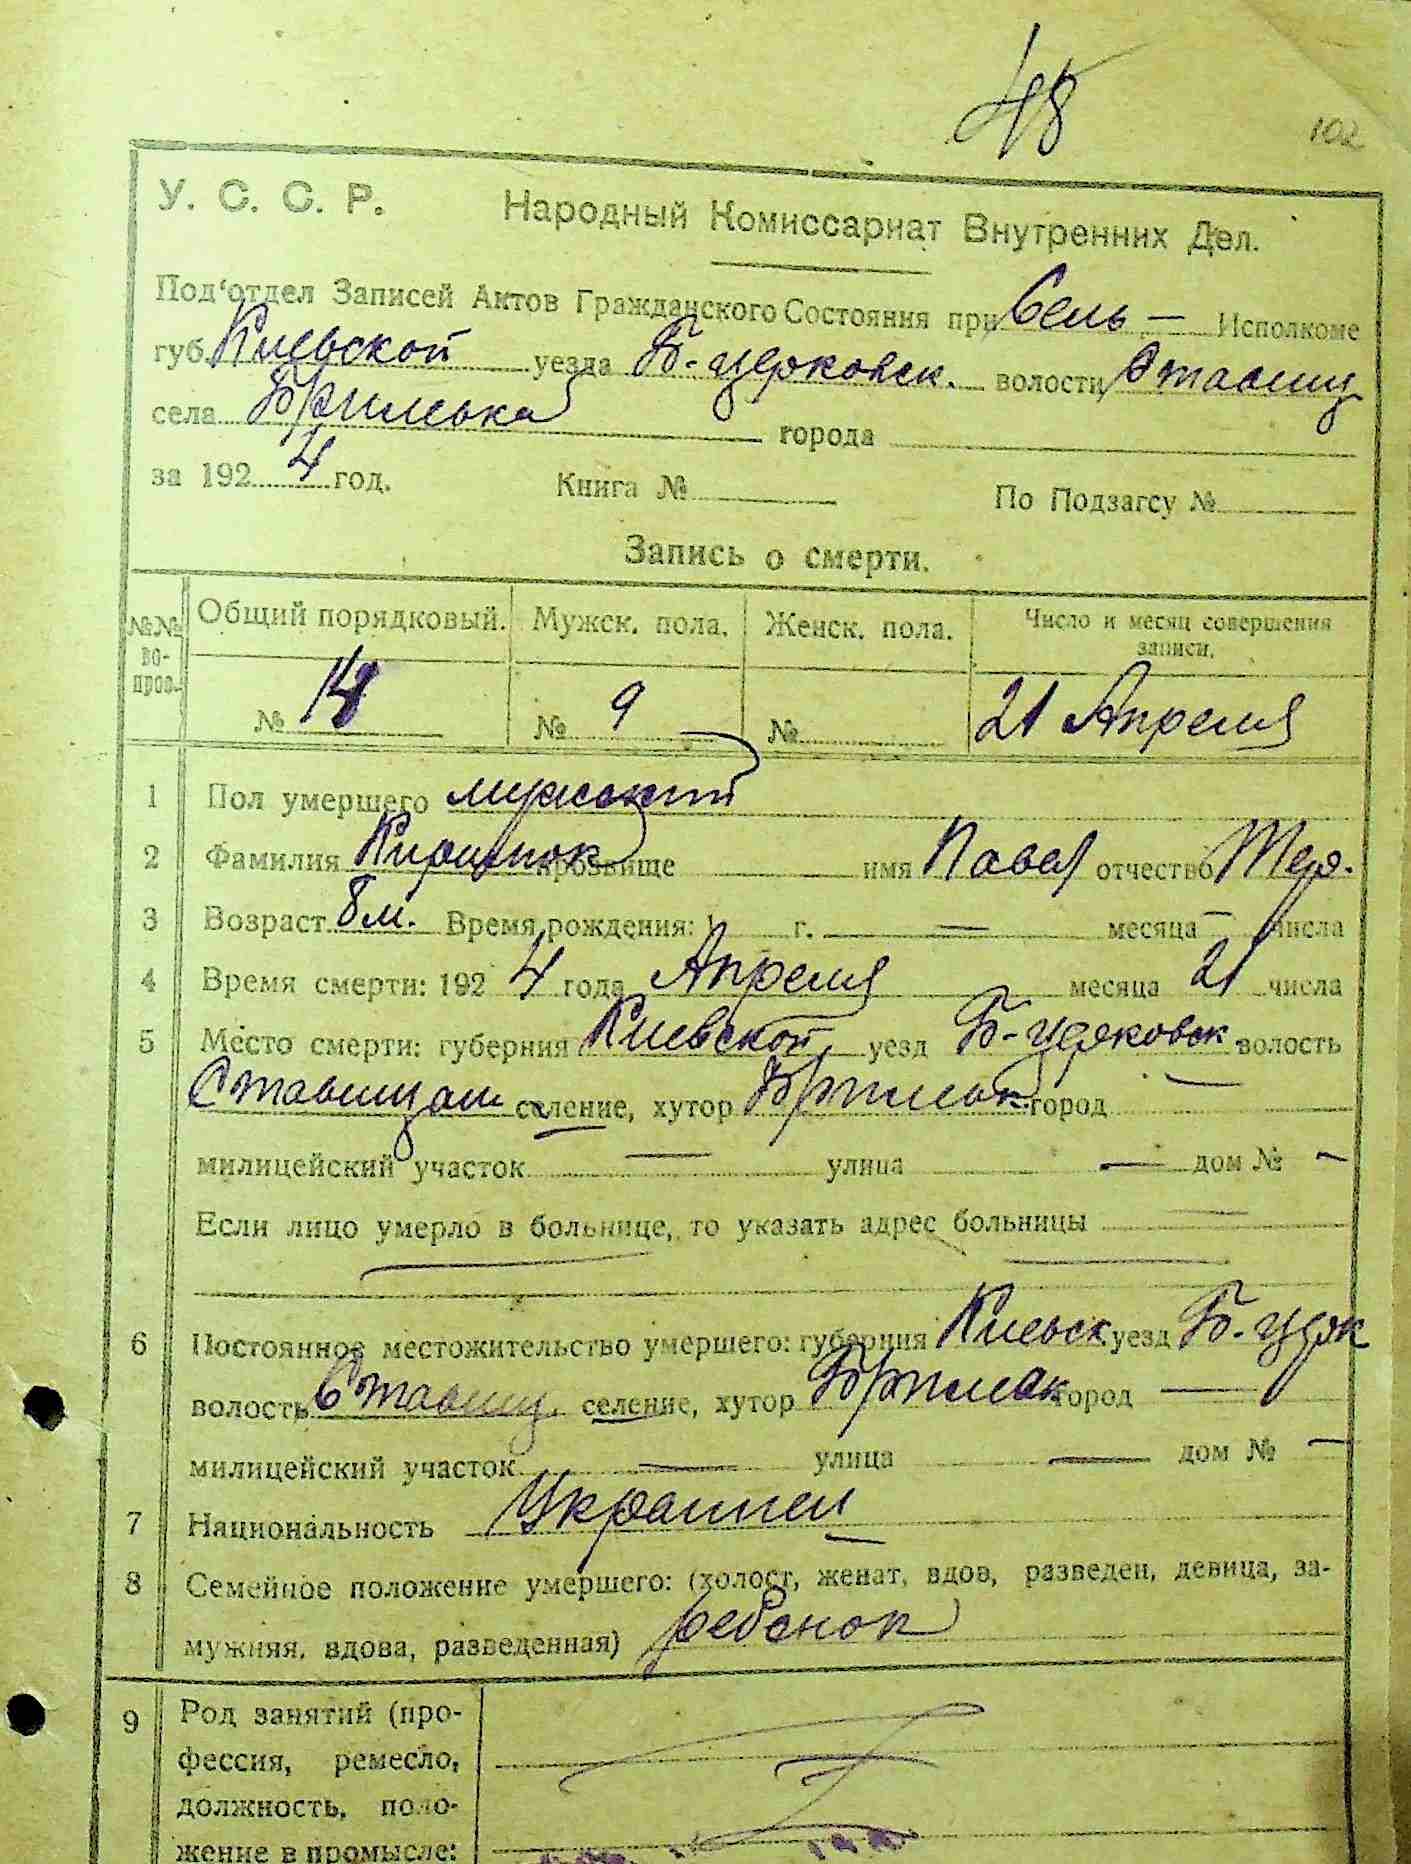 48
102
У. С. С. Р. Народный Комиссариат Внутренних Дел.
Под'отдел Записей Актов Гражданского Состояния при Сель- Исполкоме
губ. Киевской уезда Б-церковск. волости Ставищ
села города
за 1924 год. Книга № По Подзагсу №
Запись о смерти.
№№ во-проз. Общий порядковый. Мужск. пола. Женск. пола. Число и месяц совершения записи.
№ № 9 № 21 Апреля
1 Пол умершего мужской
2 Фамилия прозвище имя Павел отчество
3 Возраст 8 м. Время рождения: 1 г. — месяца — числа
4 Время смерти: 1924 года Апреля месяца 21 числа
5 Место смерти: губерния Киевской уезд Б-церковск волость
селение, хутор город —
милицейский участок — улица — дом № —
Если лицо умерло в больнице, то указать адрес больницы —
6 Постоянное местожительство умершего: губерния Киевск уезд Б-церк
волость Ставищ. селение, хутор город —
милицейский участок — улица — дом № —
7 Национальность
8 Семейное положение умершего: (холост, женат, вдов, разведен, девица, за-
мужняя, вдова, разведенная) ребенок
9 Род занятий (про-
фессия, ремесло,
должность, поло-
жение в промысле: